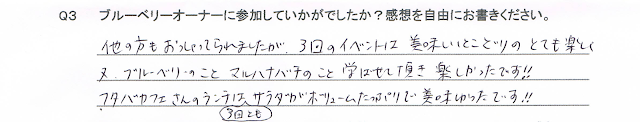 Q3 ブルーベリーオーナーに参加していかがでしたか?感想を自由にお書きください。
他の方もおっしゃってられましたが、3回のイベントは美味しいとこどりのとても楽しく
又、ブルーベリーのこと マルハナバチのこと 学ばせて頂き 楽しかったです!!
フタバカフェさんのランチは、サラダがボリュームたっぷりで美味しかったです!!
3回とも